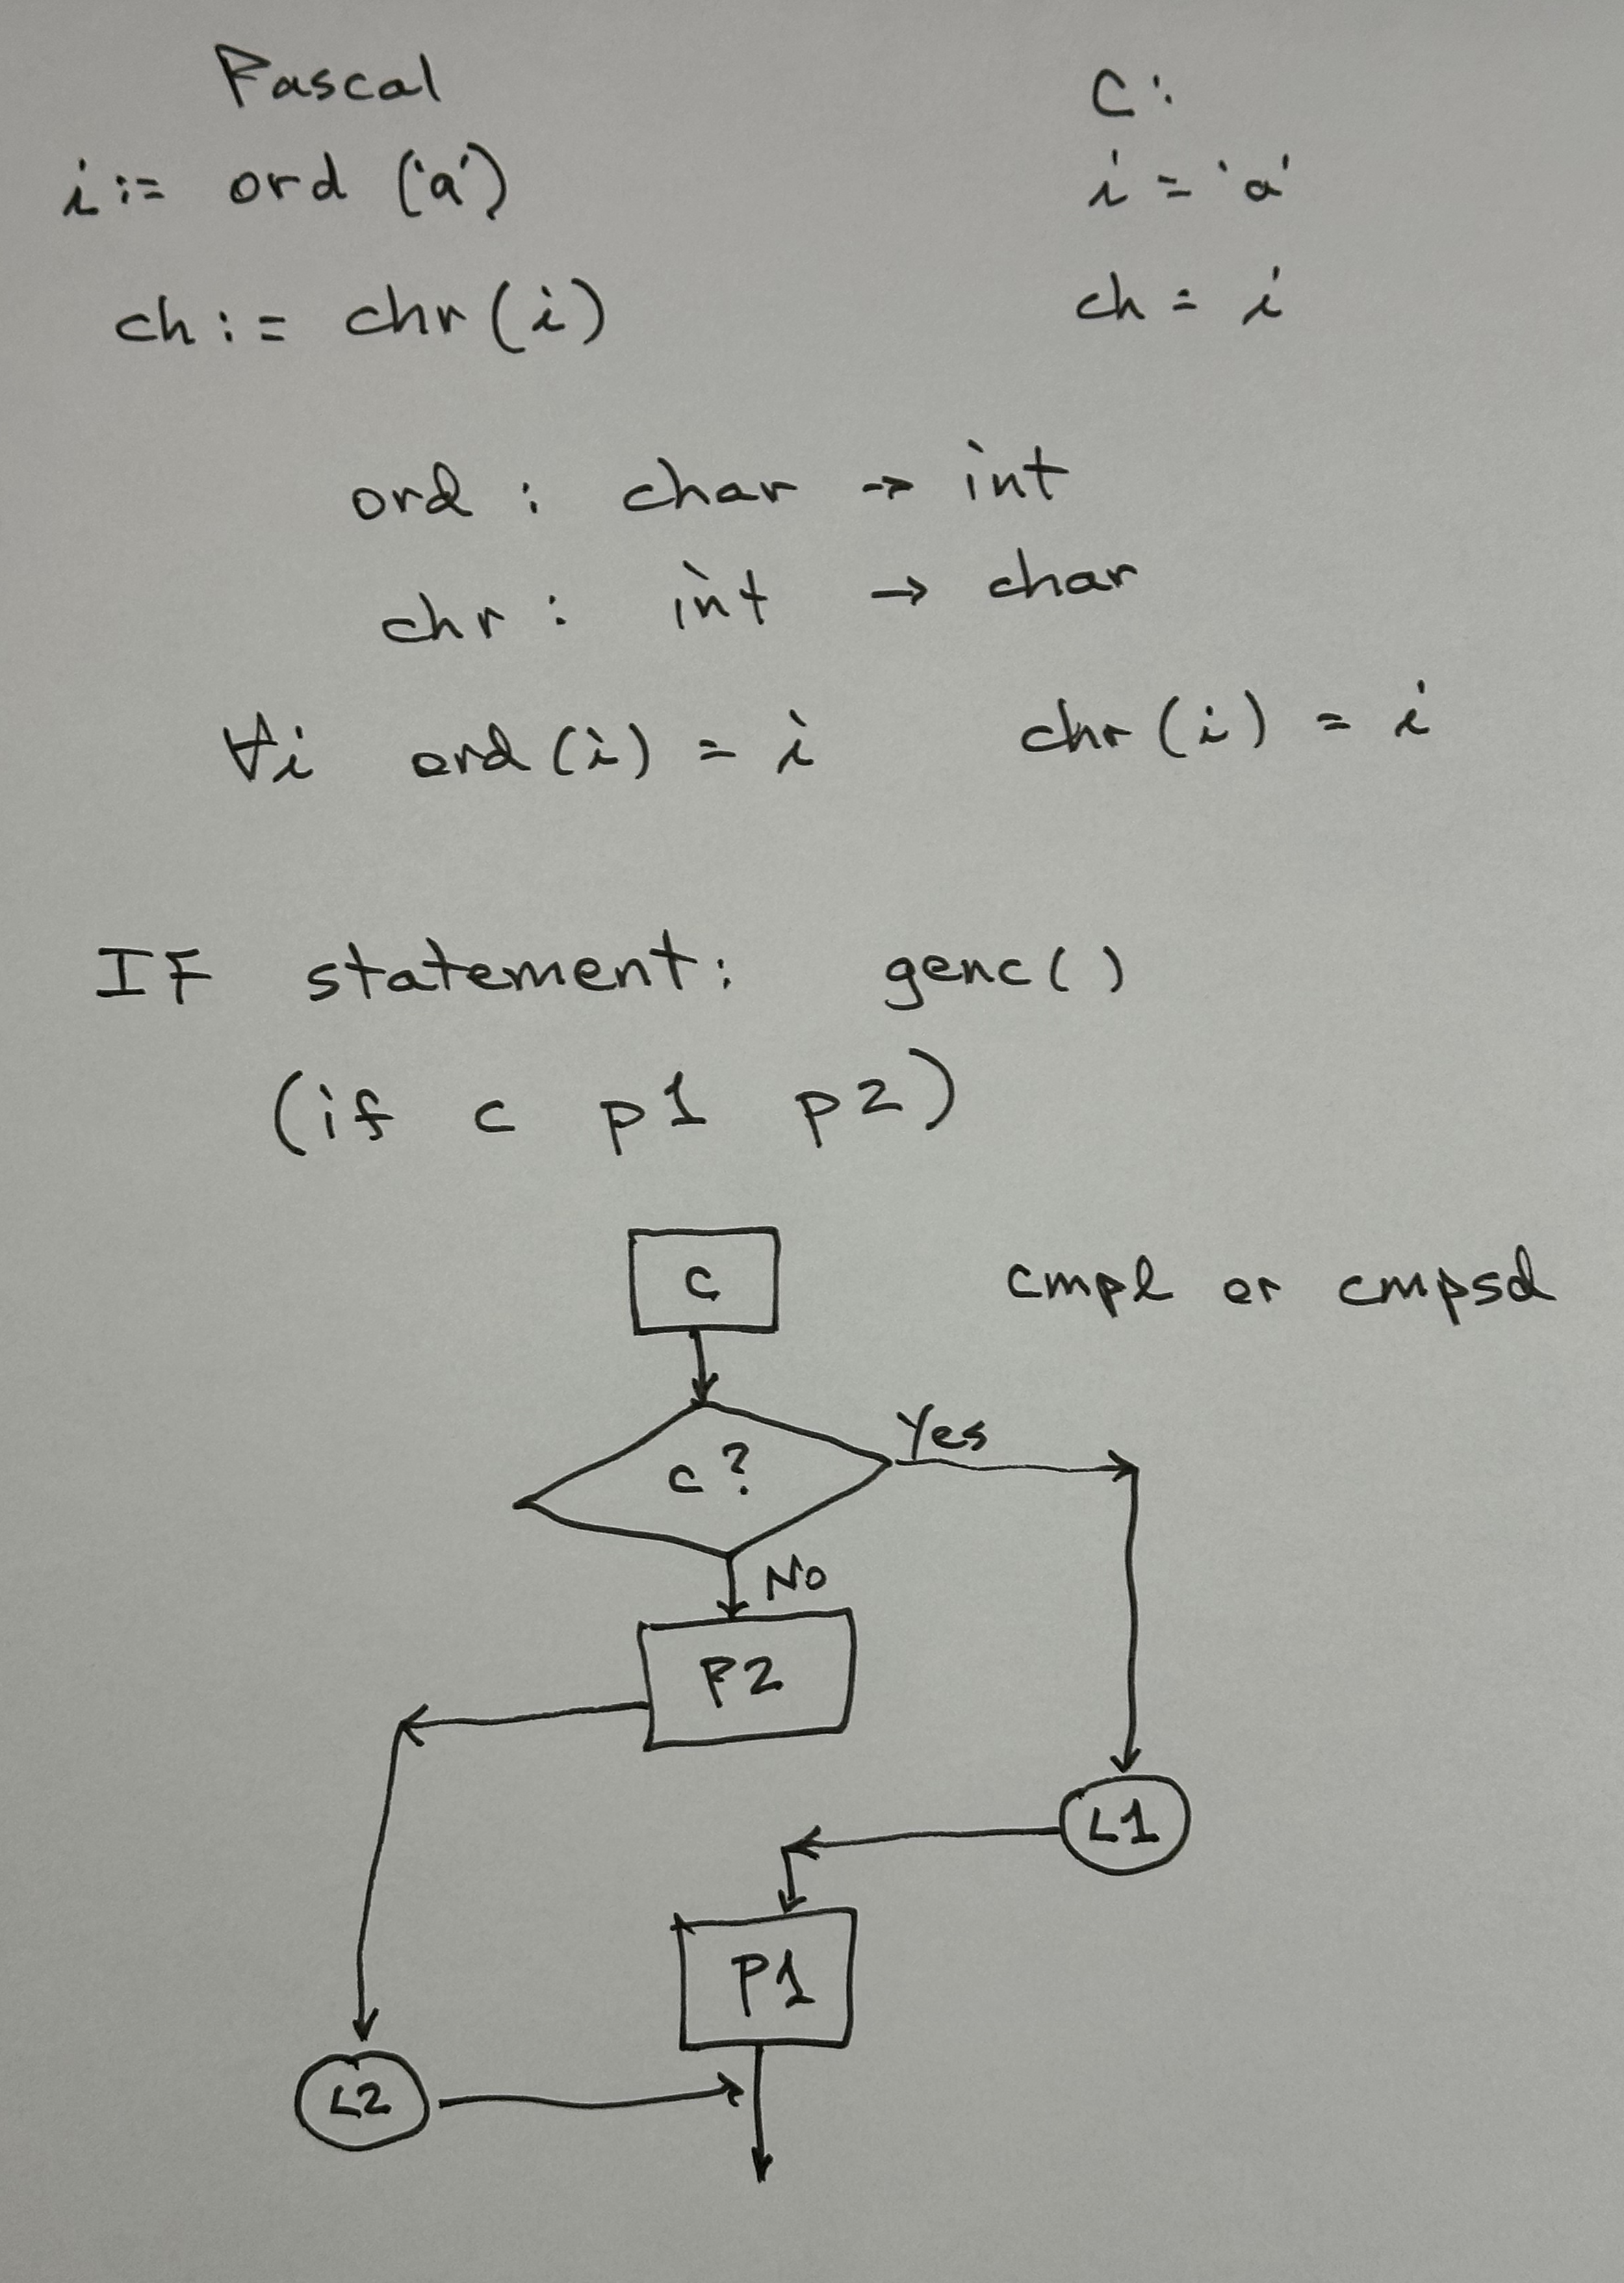 Pascal C:
i := ord ('a') i = 'a'
ch := chr (i) ch = i
ord : char → int
chr : int → char
∀i ord (i) = i chr (i) = i
IF statement: genc()
(if c p1 p2)
C cmpl or cmpsd
c? Yes
No
P2
L1
P1
L2